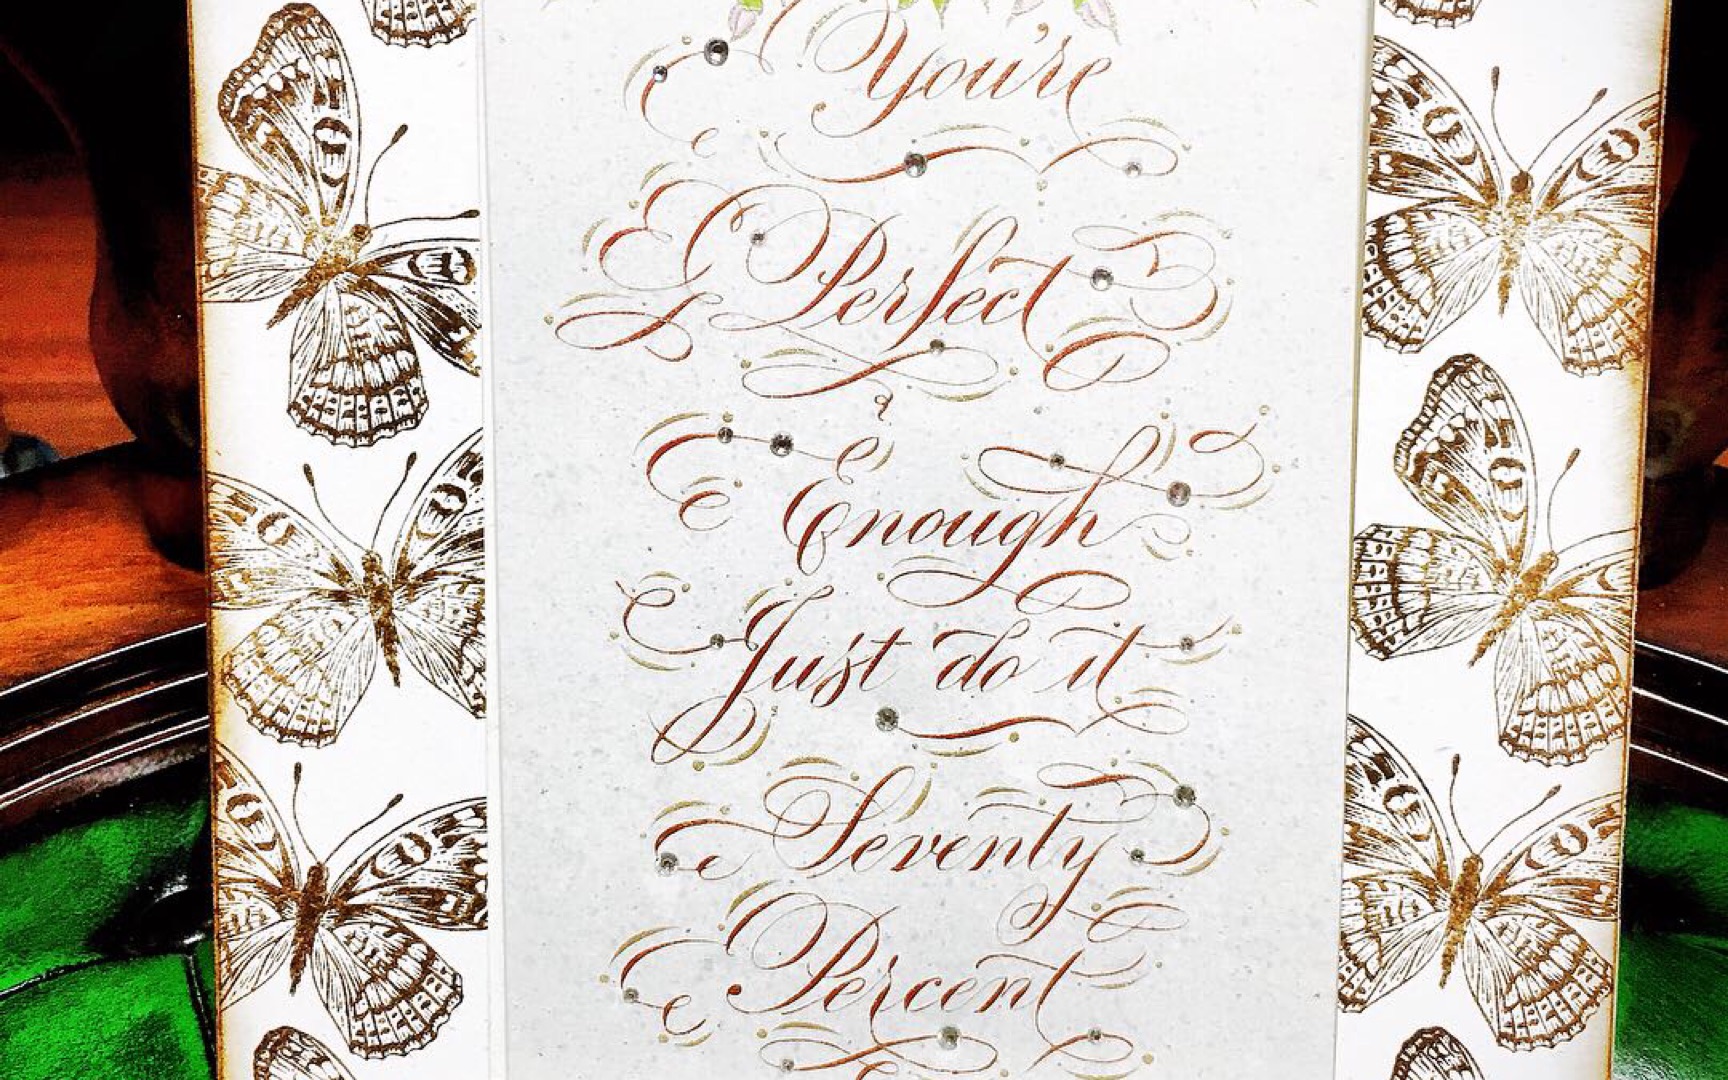 You're
Perfect
Enough
Just do it
Seventy
Percent